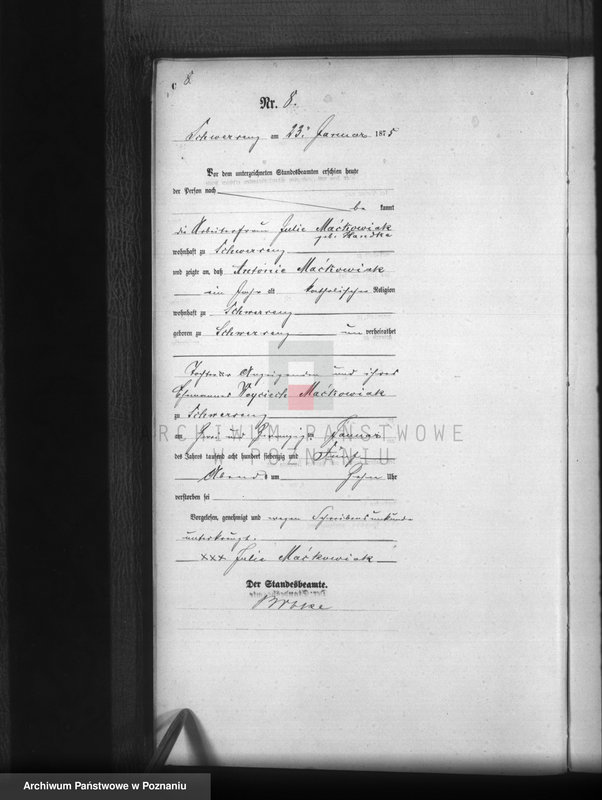 8.
Nr. 8.
Schwersenz am 23. Januar 1875
Vor dem unterzeichneten Standesbeamten erschien heute
der Person nach
be kannt
die Arbeiterfrau Julie Maćkowiak
geb. Handke
wohnhaft zu Schwersenz
und zeigte an, daß Antonie Maćkowiak
ein Jahr alt katholischer Religion
wohnhaft zu Schwersenz
geboren zu Schwersenz un verheirathet
Tochter der Anzeigenden und ihres
Ehemannes Woyciech Maćkowiak
zu Schwersenz
am zwei und zwanzigsten Januar
des Jahres tausend acht hundert siebenzig und Fünf
Abends um Zehn Uhr
verstorben sei
Vorgelesen, genehmigt und wegen Schreibensunkunde
unterkreuzt.
xxx Julie Maćkowiak
Der Standesbeamte.
ARCHIWUM PAŃSTWOWE
W POZNANIU
Archiwum Państwowe w Poznaniu